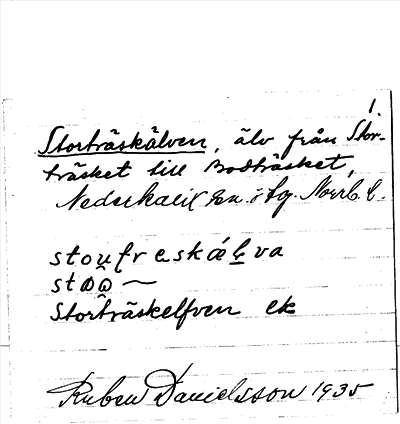 Storträskälven, älv från Stor-
träsket till Bodträsket,
Nederkalix sn. o. tg. Norrb. l.
stou̯treskálva
st
Storträskelfven ek
Ruben Danielsson 1935